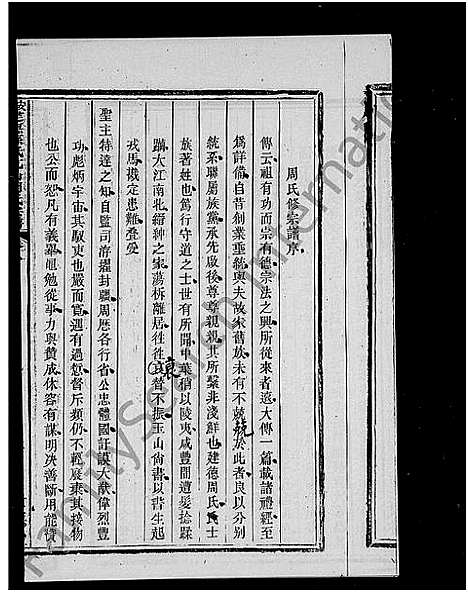 周氏修宗譜序
傳云祖有功而宗有德宗法之興所從來者遠大傳一篇載諸禮經至
為詳備自昔創業垂統與夫故家舊族未有不兢兢於此者良以分別
統系聯屬族黨承先啟後尊尊親親其所繫非淺鮮也建德周氏氏士
族著姓也篤行守道之士世有所聞中葉稍以陵夷咸豐間遭髮捻蹂
躪大江南北縉紳之家蕩析離居往往哀替不振玉山尚書以書生起
戎馬戡定患難疊受
聖主特達之知自監司洊擢封疆周歷各行省公忠體國訏謨大猷偉烈豐
功彪炳宇宙其馭吏也嚴而寬遇有過愆督斥類仍不輕廢棄其接物
也公而恕凡有義舉黽勉從事力與贊成休容有謀明決善斷用能贊
FamilySearch International